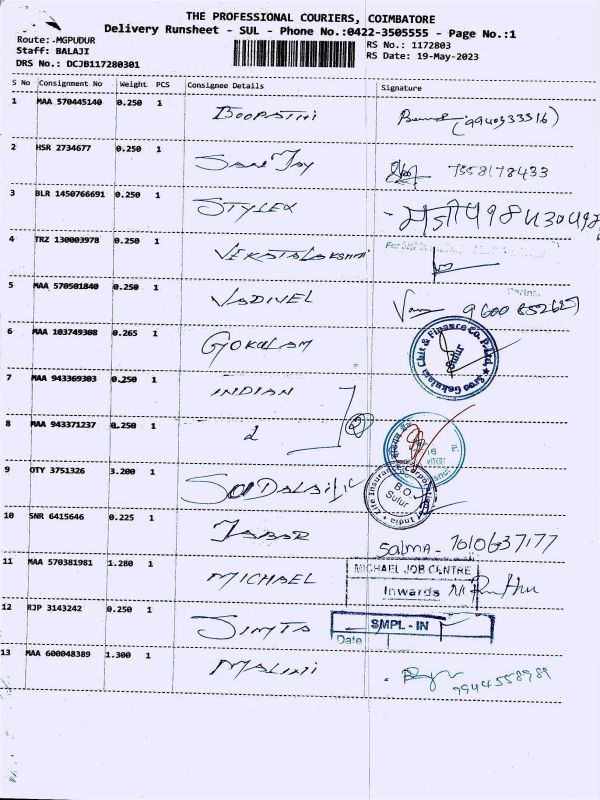 THE PROFESSIONAL COURIERS, COIMBATORE
Delivery Runsheet - SUL - Phone No.:0422-3505555 - Page No.:1
Route:.MGPUDUR
Staff: BALAJI
DRS No.: DCJB117280301
RS No.: 1172803
RS Date: 19-May-2023
S No Consignment No Weight PCS Consignee Details Signature
1 MAA 570445140 0.250 1 BOOPATHI (9940333516)
2 HSR 2734677 0.250 1 7558178433
3 BLR 1450766691 0.250 1 STYLEX
4 TRZ 130003978 0.250 1 VEKATALAKSHMI
5 MAA 570501840 0.250 1 VADIVEL 9600852627
6 MAA 103749308 0.265 1 GOKULAM
Sree Gokulam Chit & Finance Co. P. Ltd
Sulur
7 MAA 943369303 0.250 1 INDIAN
8 MAA 943371237 0.250 1 2
9 OTY 3751326 3.200 1
Life Insurance Corporation of India
B.O.
Sulur
10 SNR 6415646 0.225 1 JABAR Salma - 7010637177
11 MAA 570381981 1.280 1 MICHAEL
MICHAEL JOB CENTRE
Inwards
12 RJP 3143242 0.250 1 SIMTA
SMPL - IN
Date
13 MAA 600048389 1.300 1 MALINI 9944558989